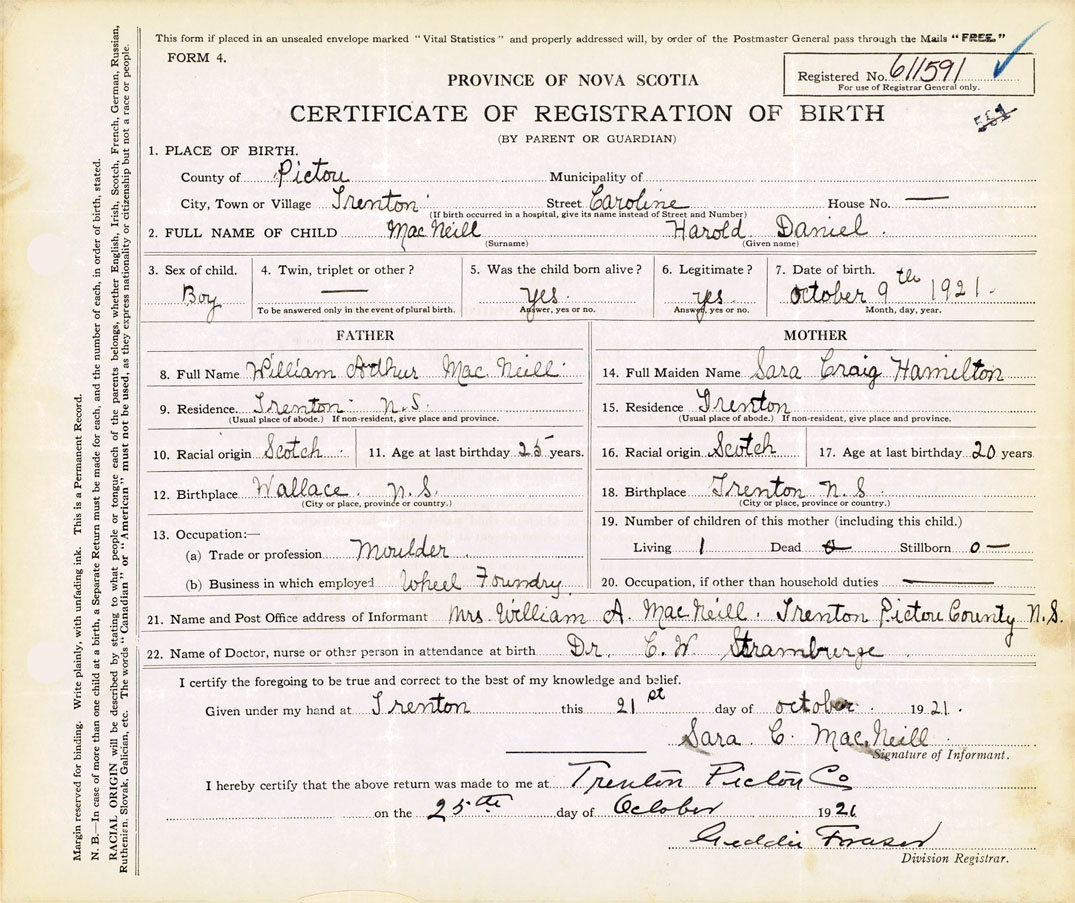 This form if placed in an unsealed envelope marked "Vital Statistics" and properly addressed will, by order of the Postmaster General pass through the Mails "FREE."
FORM 4.
Registered No. 611591
For use of Registrar General only.
PROVINCE OF NOVA SCOTIA
CERTIFICATE OF REGISTRATION OF BIRTH
(BY PARENT OR GUARDIAN)
1. PLACE OF BIRTH.
County of Pictou Municipality of
City, Town or Village Trenton Street Caroline House No. —
(If birth occurred in a hospital, give its name instead of Street and Number)
2. FULL NAME OF CHILD Mac Neill Harold Daniel
(Surname) (Given name)
3. Sex of child. 4. Twin, triplet or other? 5. Was the child born alive? 6. Legitimate? 7. Date of birth.
Boy — Yes. yes. October 9th 1921.
To be answered only in the event of plural birth. Answer, yes or no. Answer, yes or no. Month, day, year.
FATHER
8. Full Name William Arthur Mac Neill
9. Residence. Trenton N.S.
(Usual place of abode.) If non-resident, give place and province.
10. Racial origin Scotch 11. Age at last birthday 25 years.
12. Birthplace Wallace. N.S.
(City or place, province or country.)
13. Occupation:—
(a) Trade or profession Moulder
(b) Business in which employed Wheel Foundry
MOTHER
14. Full Maiden Name Sara Craig Hamilton
15. Residence Trenton
(Usual place of abode.) If non-resident, give place and province.
16. Racial origin Scotch 17. Age at last birthday 20 years
18. Birthplace Trenton N.S
(City or place, province or country.)
19. Number of children of this mother (including this child.)
Living 1 Dead 0 Stillborn 0 —
20. Occupation, if other than household duties —
21. Name and Post Office address of Informant Mrs. William A. MacNeill. Trenton Pictou County N.S.
22. Name of Doctor, nurse or other person in attendance at birth Dr. C. W
I certify the foregoing to be true and correct to the best of my knowledge and belief.
Given under my hand at Trenton this 21st day of october. 1921.
Sara C. MacNeill
Signature of Informant.
I hereby certify that the above return was made to me at Trenton Pictou Co
on the 25th day of October 1921
Fraser
Division Registrar.
Margin reserved for binding. Write plainly, with unfading ink. This is a Permanent Record.
N. B.—In case of more than one child at a birth, a Separate Return must be made for each, and the number of each, in order of birth, stated.
RACIAL ORIGIN will be described by stating to what people or tongue each of the parents belongs, whether English, Irish, Scotch, French, German, Russian,
Ruthenian, Slovak, Galician, etc. The words "Canadian" or "American" must not be used, as they express nationality or citizenship but not a race or people.